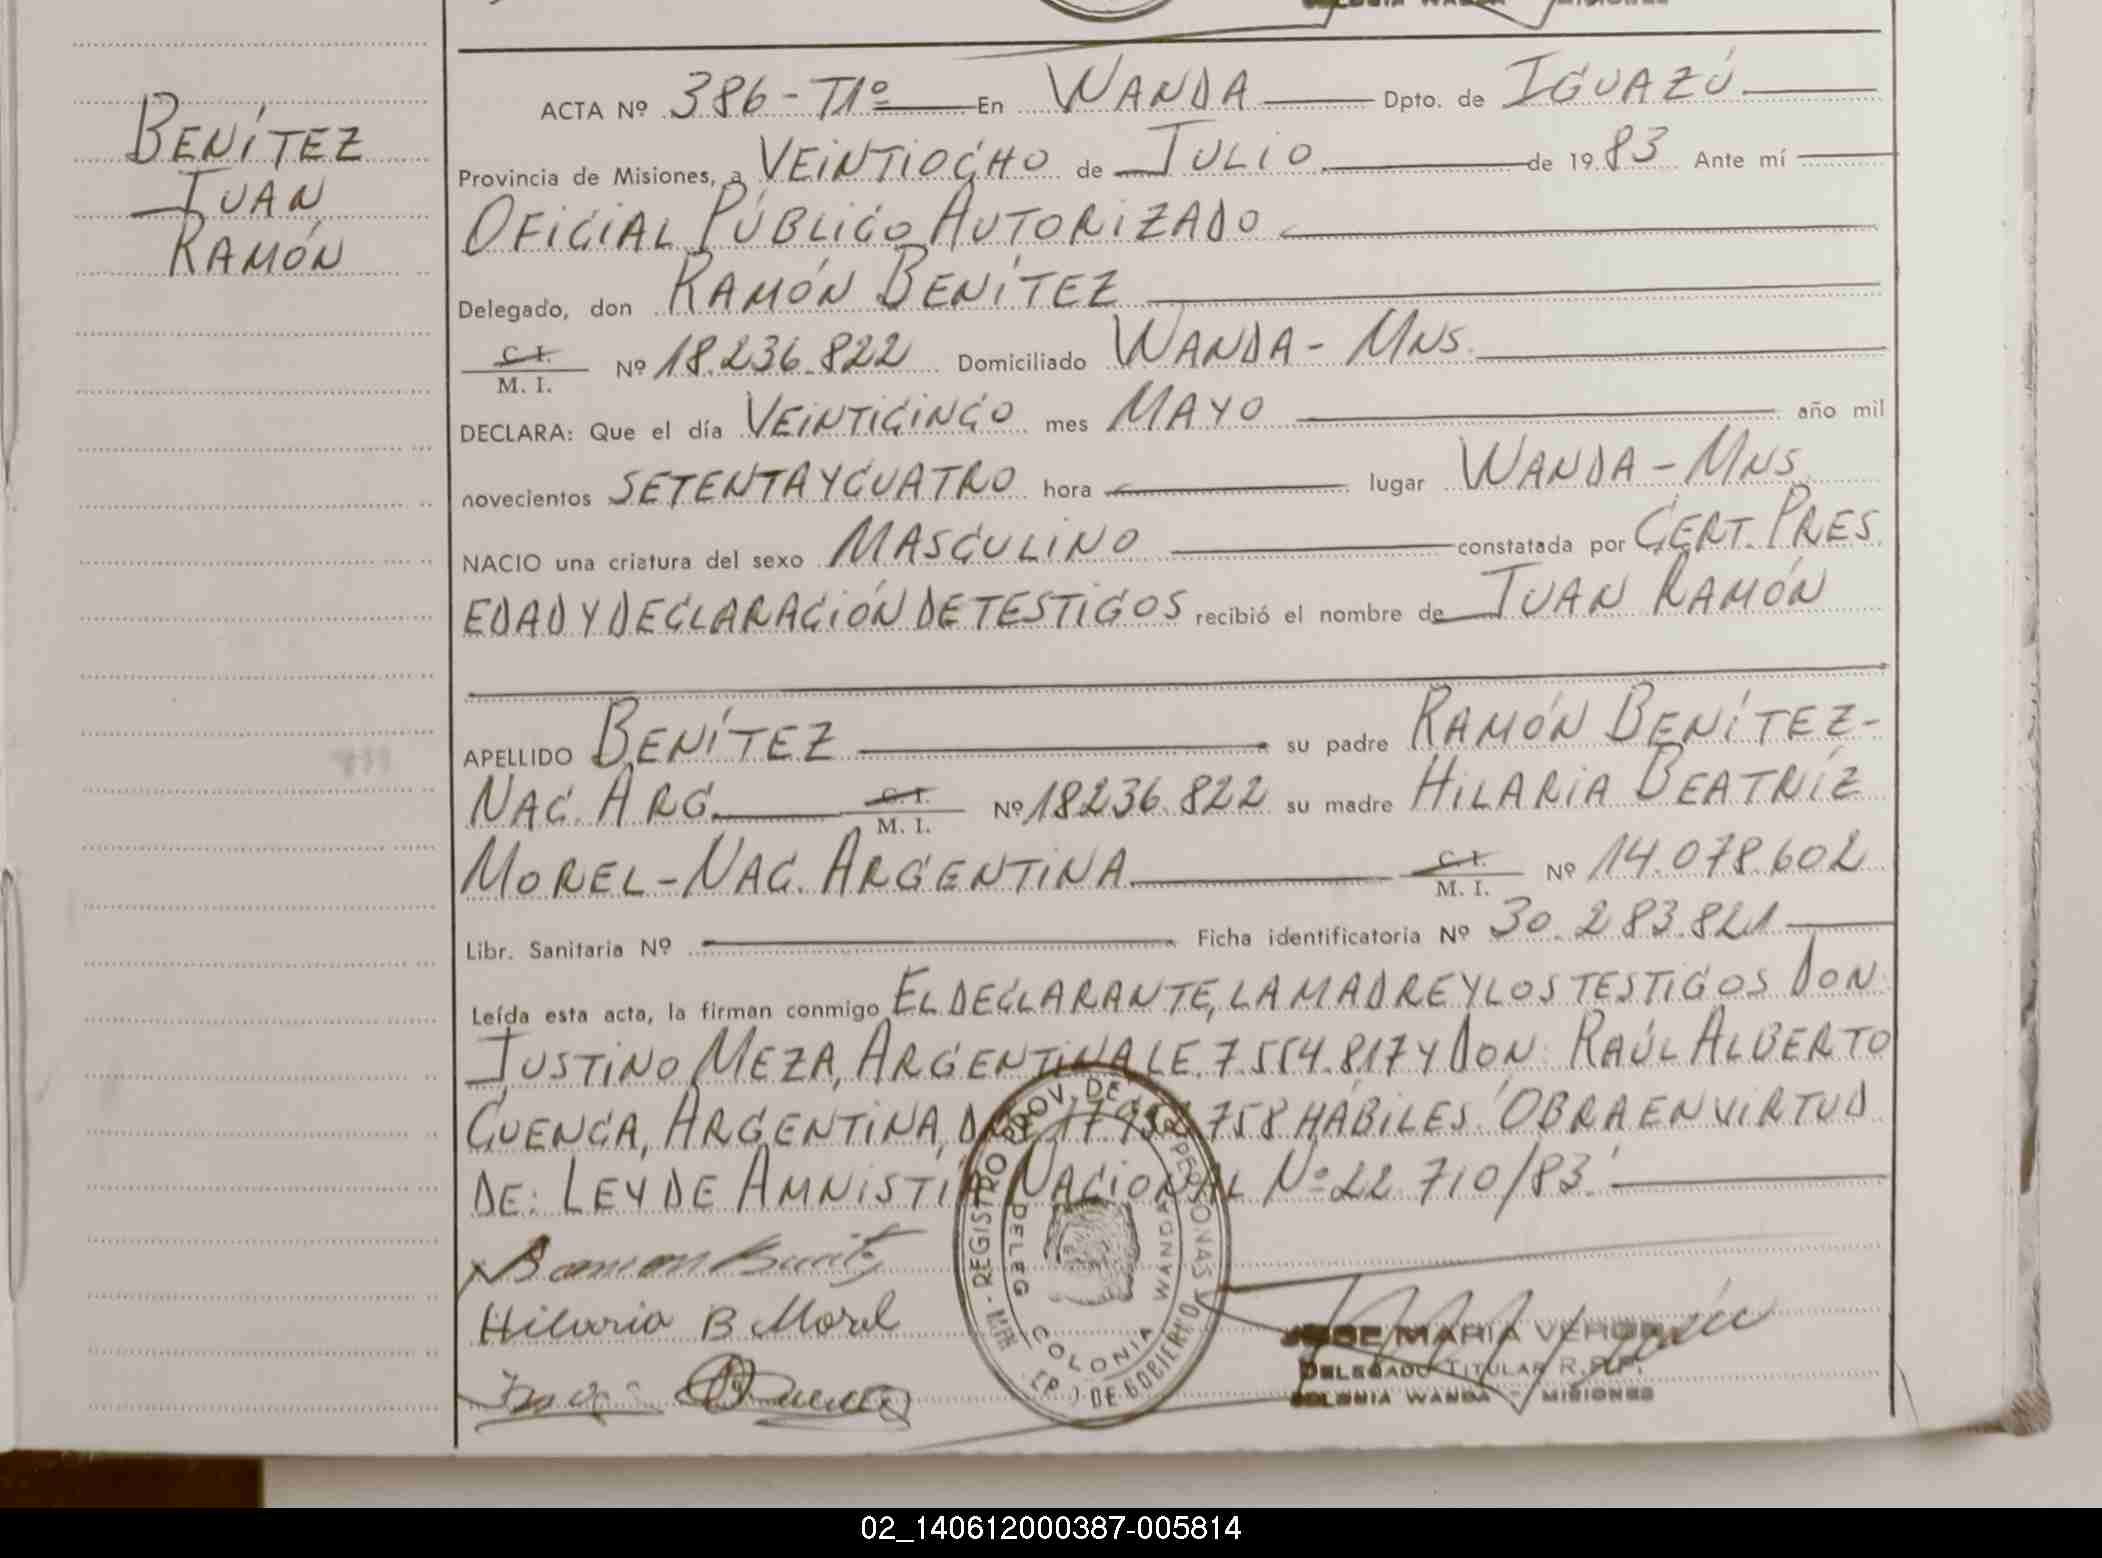 BENÍTEZ
JUAN
RAMÓN
COLONIA WANDA - MISIONES
ACTA Nº 386 - T1º En WANDA Dpto. de IGUAZÚ
Provincia de Misiones, a VEINTIOCHO de JULIO de 1983 Ante mí
OFICIAL PÚBLICO AUTORIZADO
Delegado, don RAMÓN BENÍTEZ
C. I.
M. I. Nº 18.236.822 Domiciliado WANDA - MNS.
DECLARA: Que el día VEINTICINCO mes MAYO año mil
novecientos SETENTA Y CUATRO hora lugar WANDA - MNS.
NACIO una criatura del sexo MASCULINO constatada por CERT. PRES.
EDAD Y DECLARACIÓN DE TESTIGOS recibió el nombre de JUAN RAMÓN
APELLIDO BENÍTEZ su padre RAMÓN BENÍTEZ-
NAC. ARG. C. I.
M. I. Nº 18236.822 su madre HILARIA BEATRÍZ
MOREL - NAC. ARGENTINA C. I.
M. I. Nº 14.078.602
Libr. Sanitaria Nº Ficha identificatoria Nº 30.283.821
Leída esta acta, la firman conmigo EL DECLARANTE, LA MADRE Y LOS TESTIGOS DON
JUSTINO MEZA, ARGENTINA LE. 7.554.817 Y DON RAÚL ALBERTO
CUENCA, ARGENTINA, 758 HÁBILES. "OBRA EN VIRTUD
DE: LEY DE AMNISTÍA NACIONAL Nº 22 710/83."
Ramon Benitez
Hilaria B Morel
REGISTRO PROV. DE PERSONAS
DELEG. COLONIA WANDA
DE GOBIERNO
JOSE MARIA
DELEGADO TITULAR R.P.P.
COLONIA WANDA - MISIONES
02_140612000387-005814